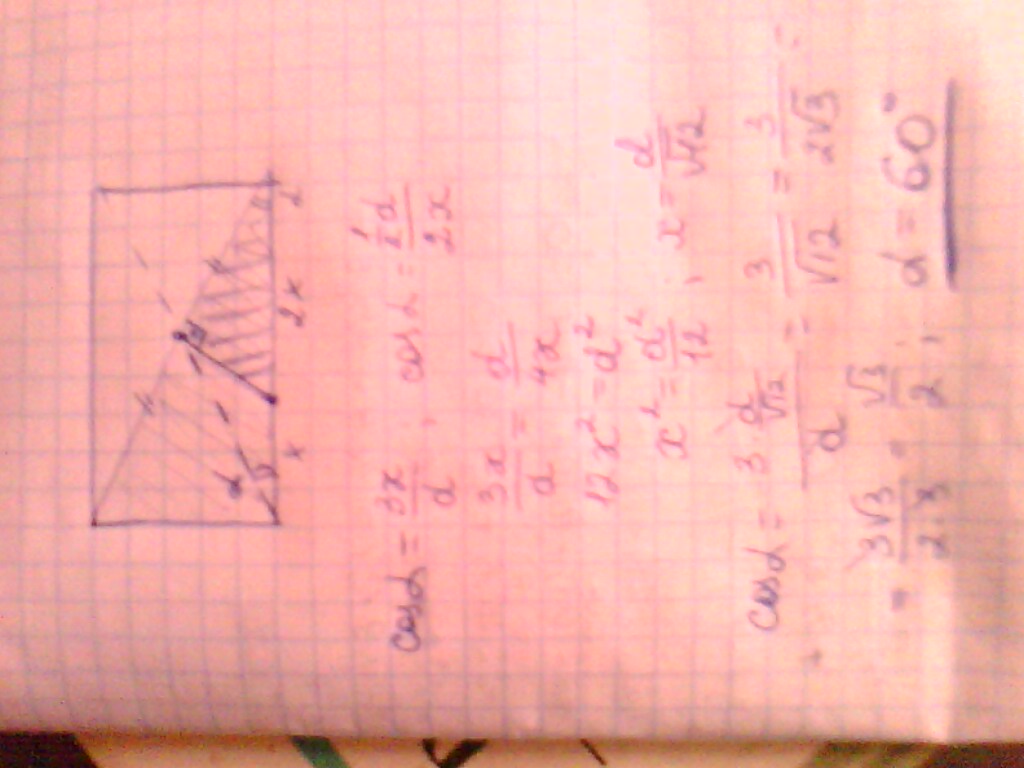 α
x 2x α
cos α = 3x/d ; cos α = (1/2 d)/2x
3x/d = d/4x
12x² = d²
x² = d²/12 ; x = d/√12
cos α = (3 · d/√12)/d = 3/√12 = 3/2√3 =
= 3√3/2·3 = √3/2 ; α = 60°